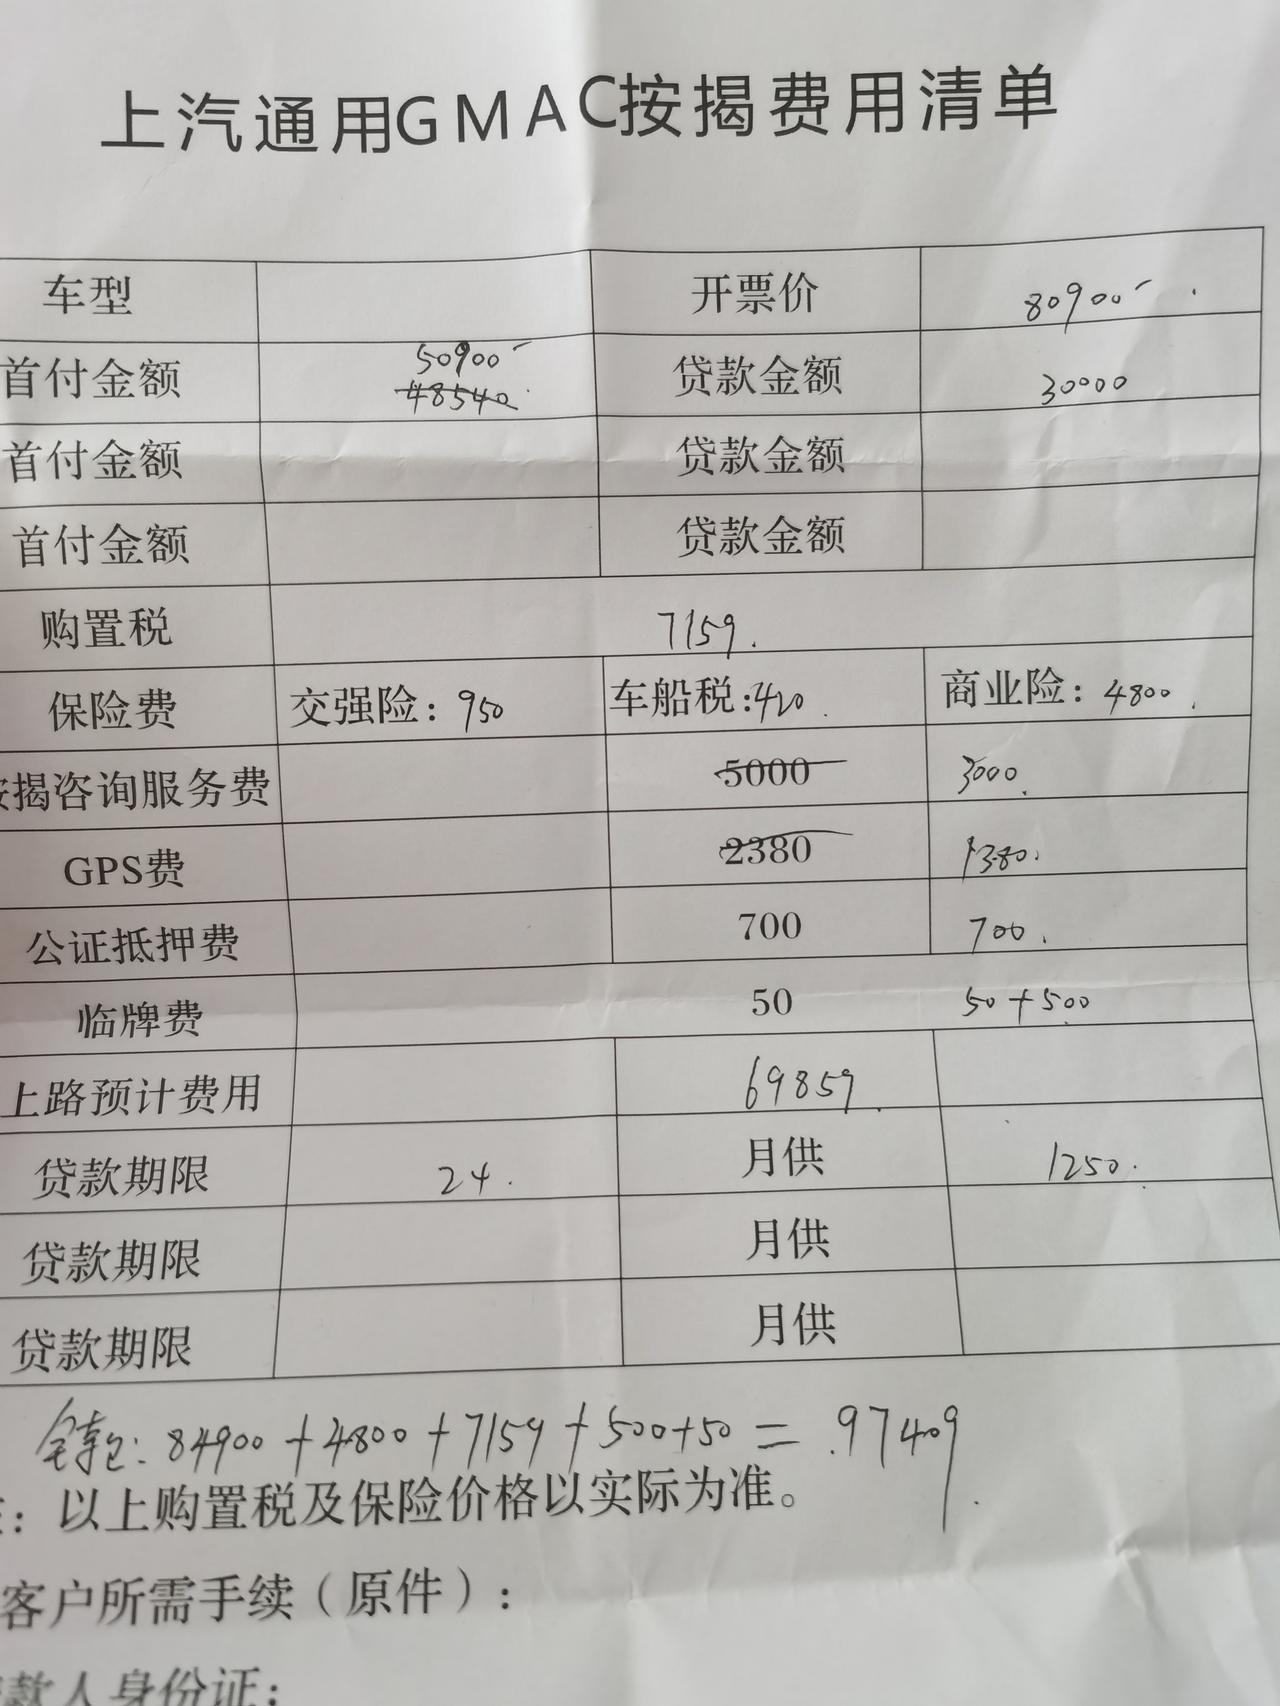 上汽通用GMAC按揭费用清单
车型 开票价 80900
首付金额 50900 48540 贷款金额 30000
首付金额 贷款金额
首付金额 贷款金额
购置税 7159.
保险费 交强险: 950 车船税:420 商业险: 4800.
按揭咨询服务费 5000 3000.
GPS费 2380 1380.
公证抵押费 700 700.
临牌费 50 50+500
上路预计费用 69859.
贷款期限 24. 月供 1250.
贷款期限 月供
贷款期限 月供
全款: 84900+4800+7159+500+50=97409
: 以上购置税及保险价格以实际为准。
客户所需手续(原件):
款人身份证: